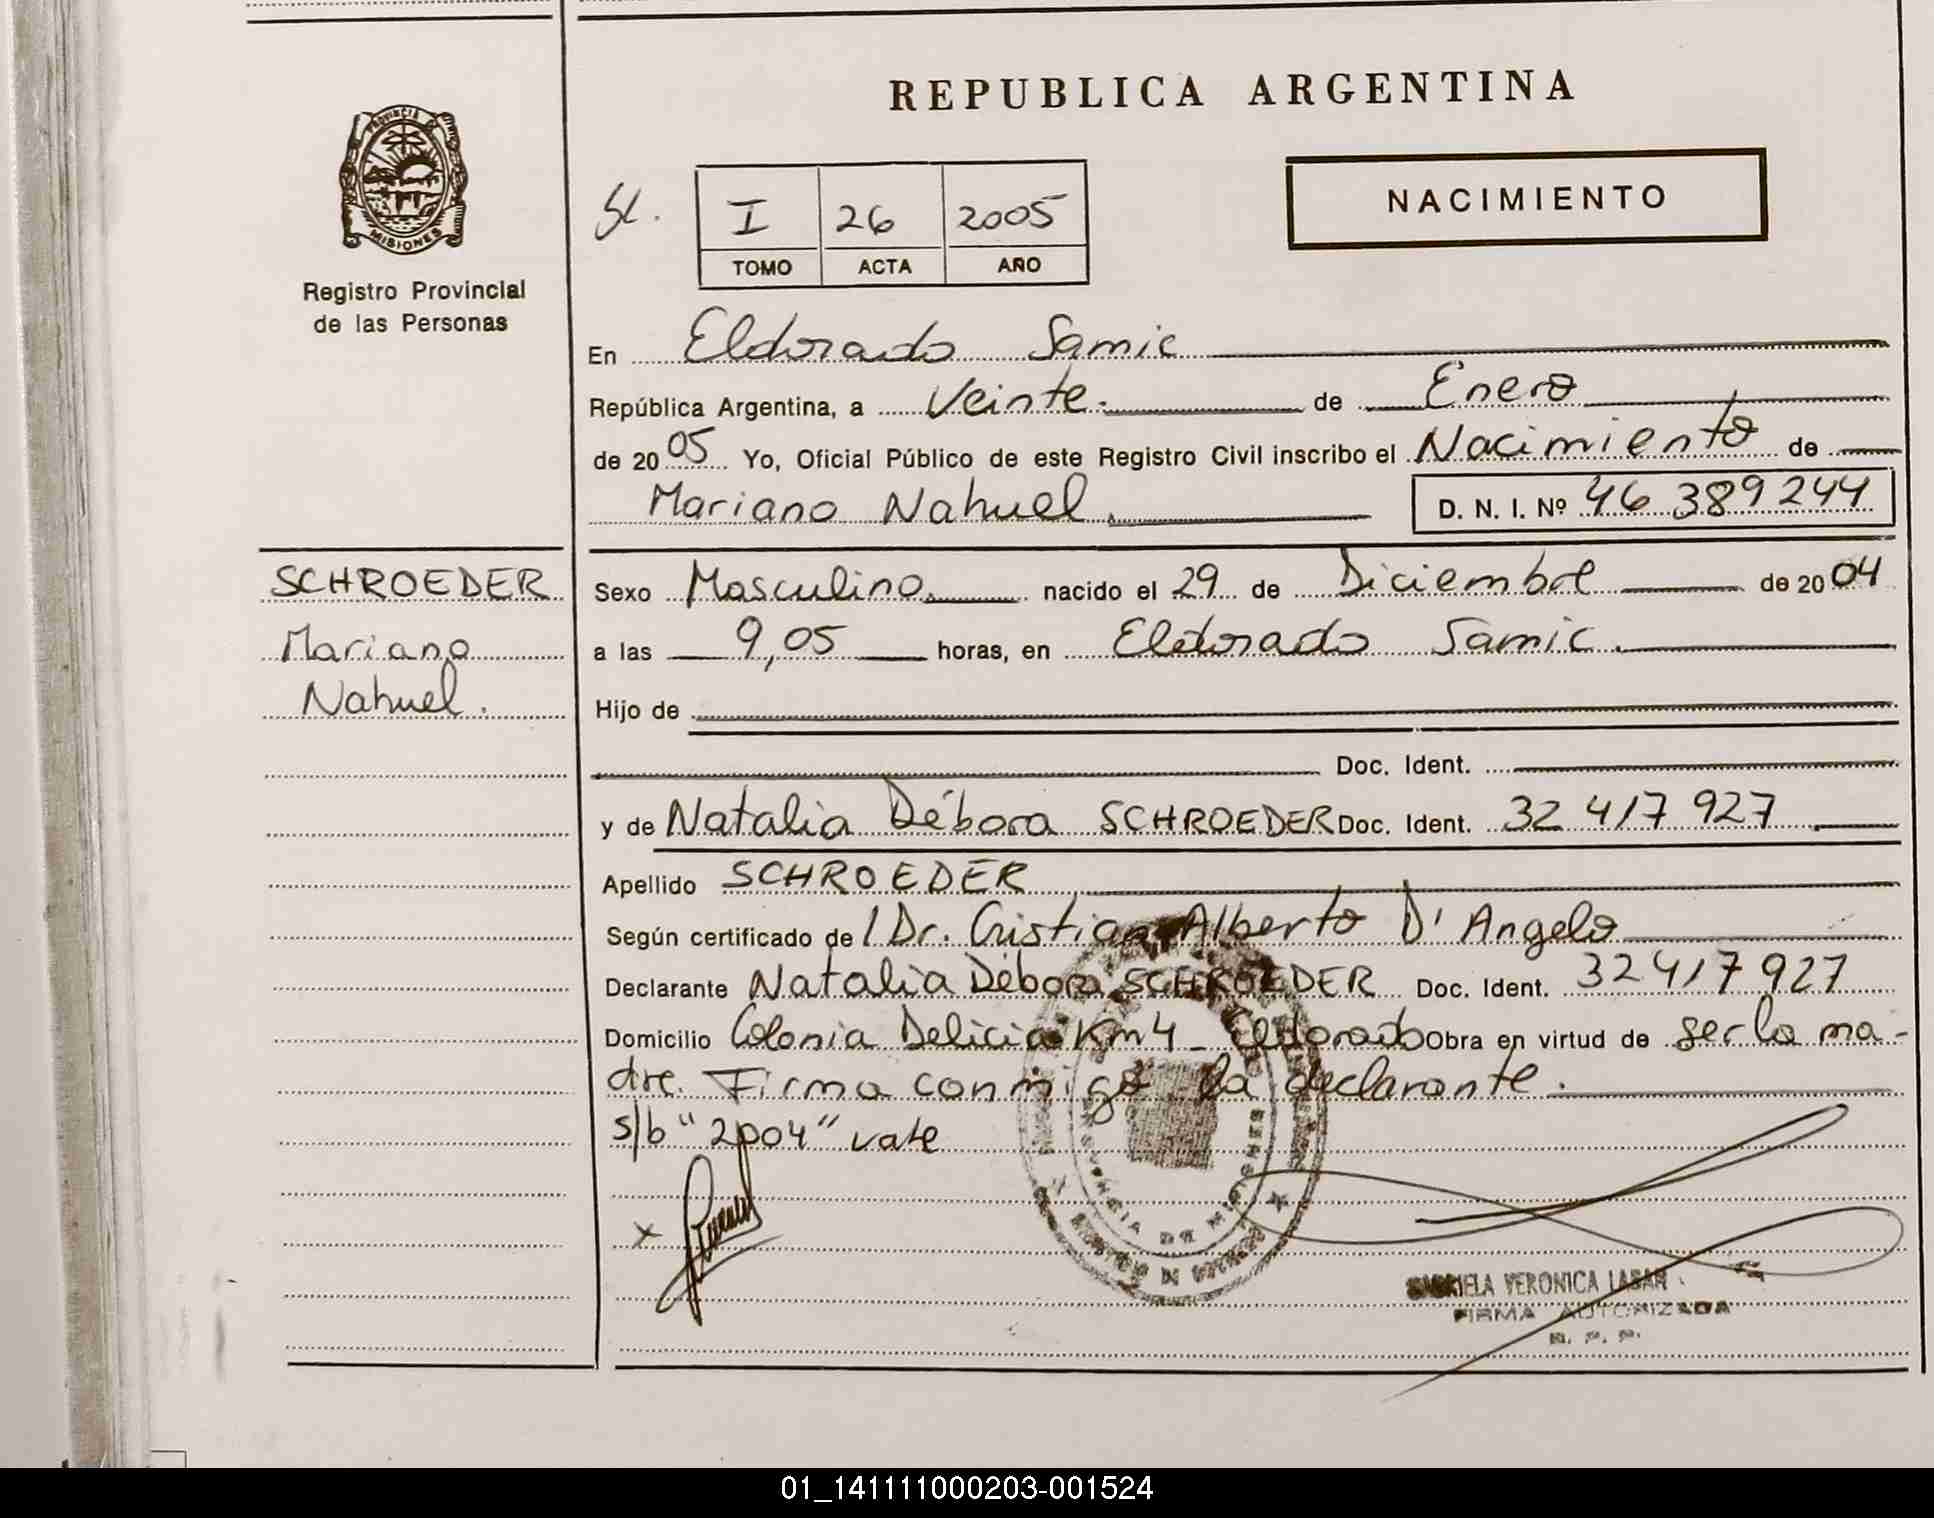 REPUBLICA ARGENTINA
PROVINCIA DE
MISIONES
Registro Provincial
de las Personas
I 26 2005
TOMO ACTA AÑO
NACIMIENTO
En Eldorado Samic
República Argentina, a Veinte. de Enero
de 2005 Yo, Oficial Público de este Registro Civil inscribo el Nacimiento de
Mariano Nahuel D. N. I. Nº 46 389 244
SCHROEDER
Mariano
Nahuel.
Sexo Masculino. nacido el 29 de Diciembre de 2004
a las 9,05 horas, en Eldorado Samic.
Hijo de
Doc. Ident.
y de Natalia Débora SCHROEDER Doc. Ident. 32 417 927
Apellido SCHROEDER
Según certificado de / Dr. Cristian Alberto D' Angelo
Declarante Natalia Débora SCHROEDER Doc. Ident. 32 417 927
Domicilio Colonia Delicia Km 4 - Eldorado Obra en virtud de ser la ma-
dre. Firma conmigo la declarante.
s/b "2004" vale
x
PROVINCIA DE MISIONES
GABRIELA VERONICA
FIRMA AUTORIZADA
R. P. P.
01_141111000203-001524